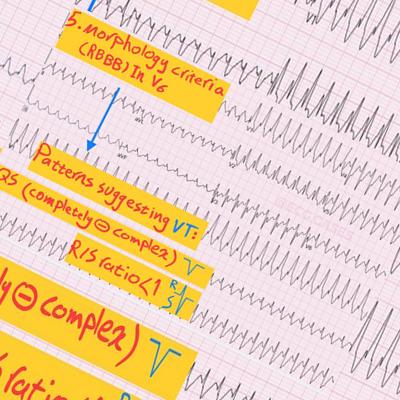 5. morphology criteria
(RBBB) In V6
Patterns suggesting VT:
QS (completely ⊖ complex)
R/S ratio < 1
R
S
ly ⊖ complex)
ratio